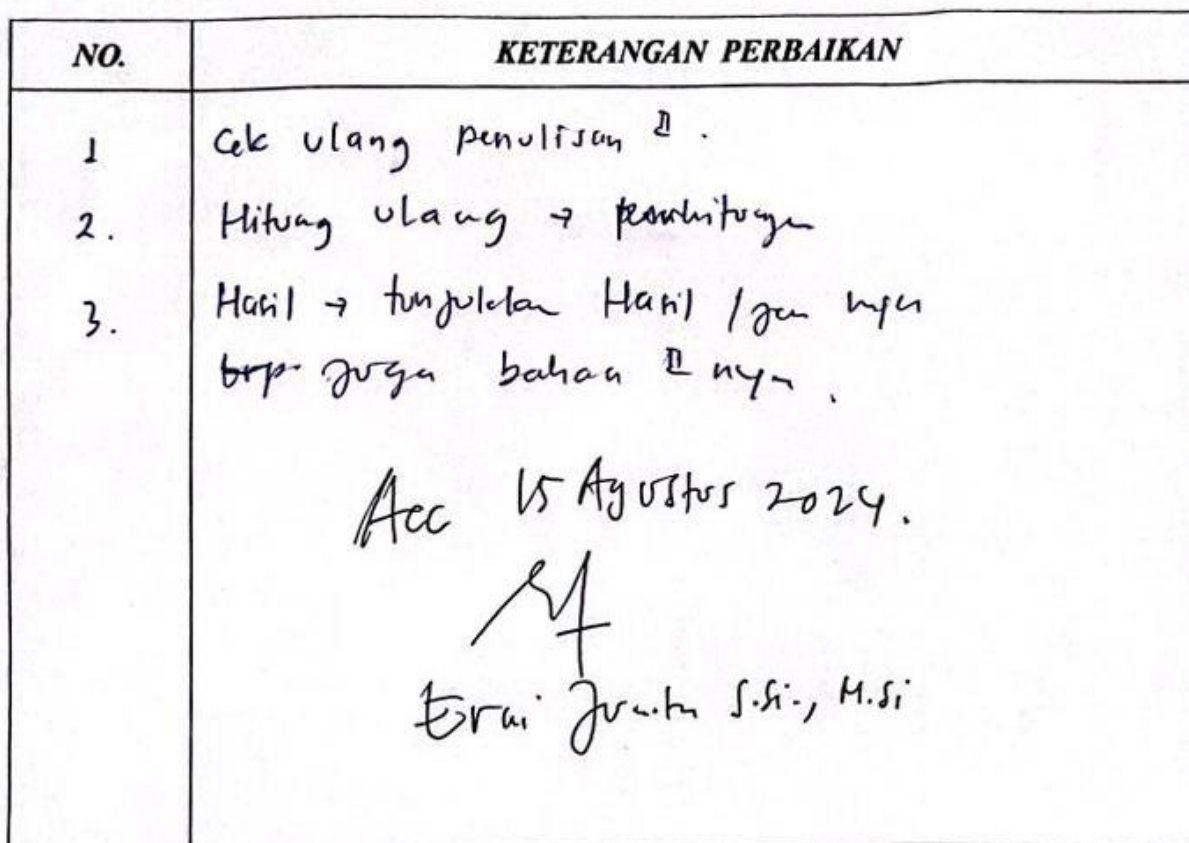 NO. KETERANGAN PERBAIKAN
1 Cek ulang penulisan
2. Hitung ulang → perhitungan
3. Hasil → tunjukkan Hasil
brp juga bahan nya.
Acc 15 Agustus 2024.
S.Si., M.Si